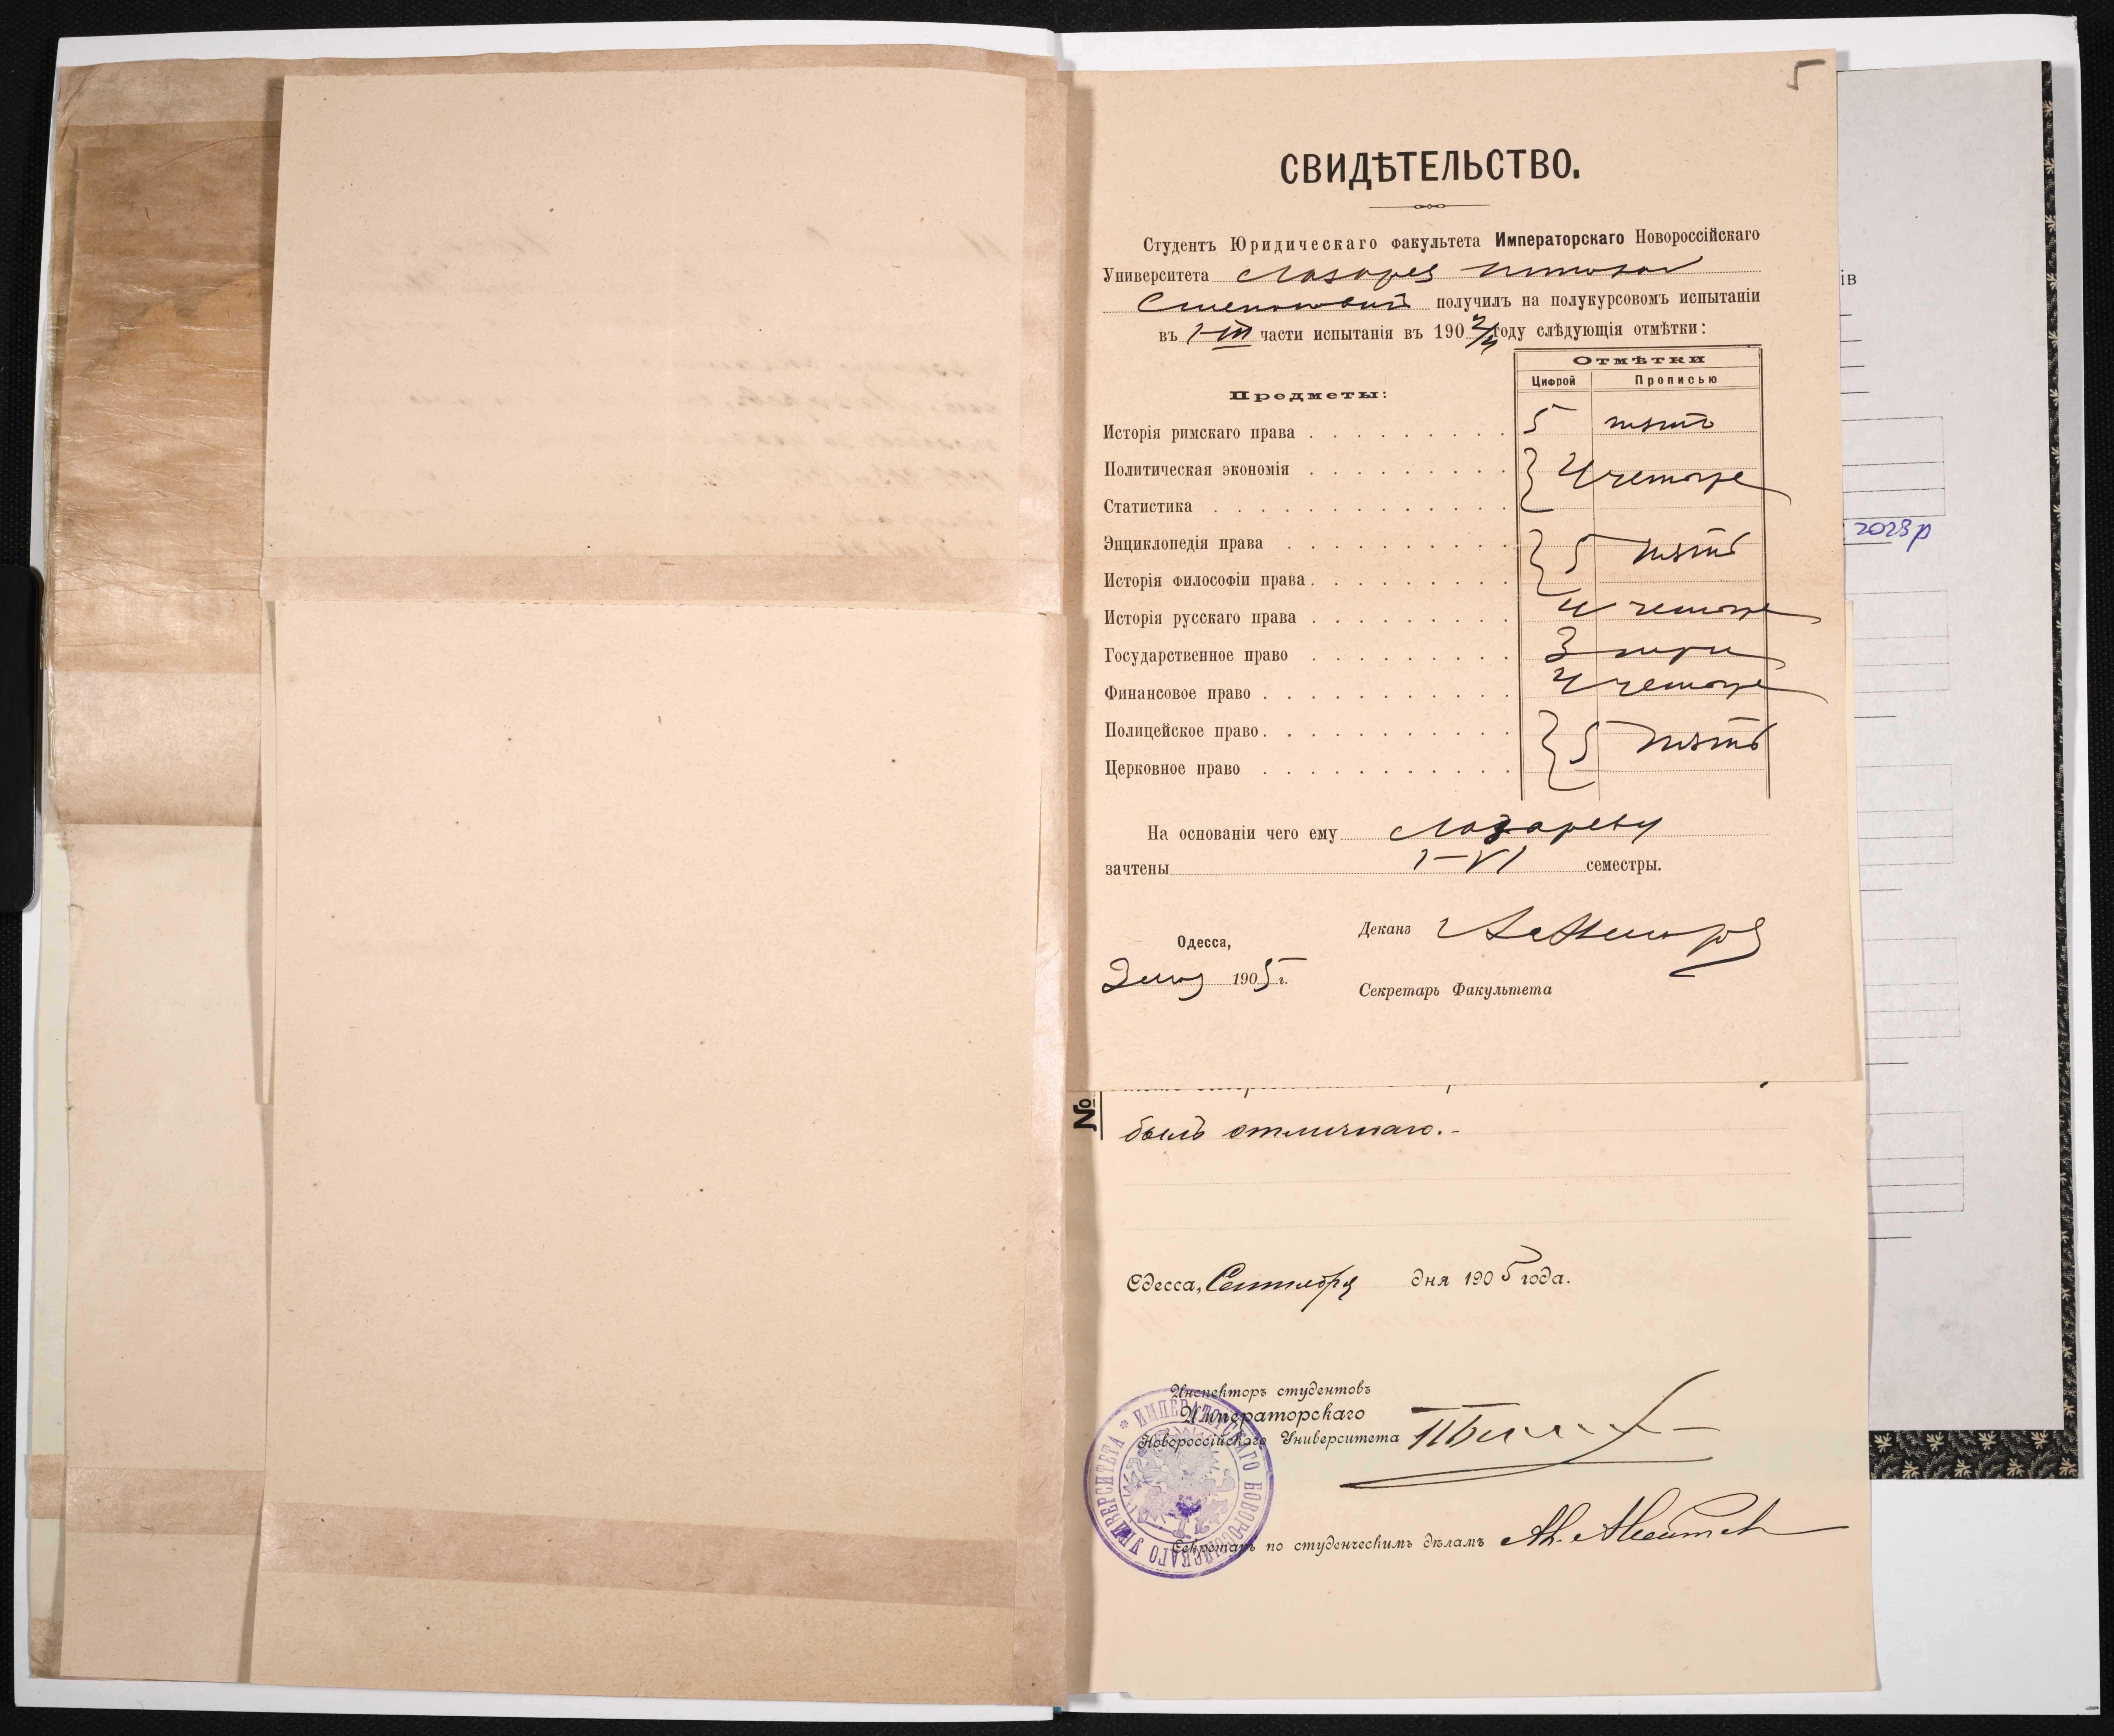 5
СВИДѢТЕЛЬСТВО.
Студентъ Юридическаго факультета Императорскаго Новороссійскаго
Университета Лазарев
получилъ на полукурсовомъ испытаніи
въ I-III части испытанія въ 190 году слѣдующія отмѣтки:
Отмѣтки
Цифрой Прописью
Предметы:
Исторія римскаго права 5 пять
Политическая экономія
4 четыре
Статистика
Энциклопедія права
5 пять
Исторія философіи права
Исторія русскаго права 4 четыре
Государственное право 3 три
Финансовое право 4 четыре
Полицейское право
5 пять
Церковное право
На основаніи чего ему Лазареву
зачтены I-VI семестры.
Одесса,
1905 г.
Деканъ
Секретарь Факультета
№
былъ отличнаго.-
Одесса, Сентября дня 1905 года.
Инспекторъ студентовъ
Императорскаго
Новороссійскаго Университета
Секретарь по студенческимъ дѣламъ
ИМПЕРАТОРСКАГО НОВОРОССІЙСКАГО УНИВЕРСИТЕТА *
ів
2023р